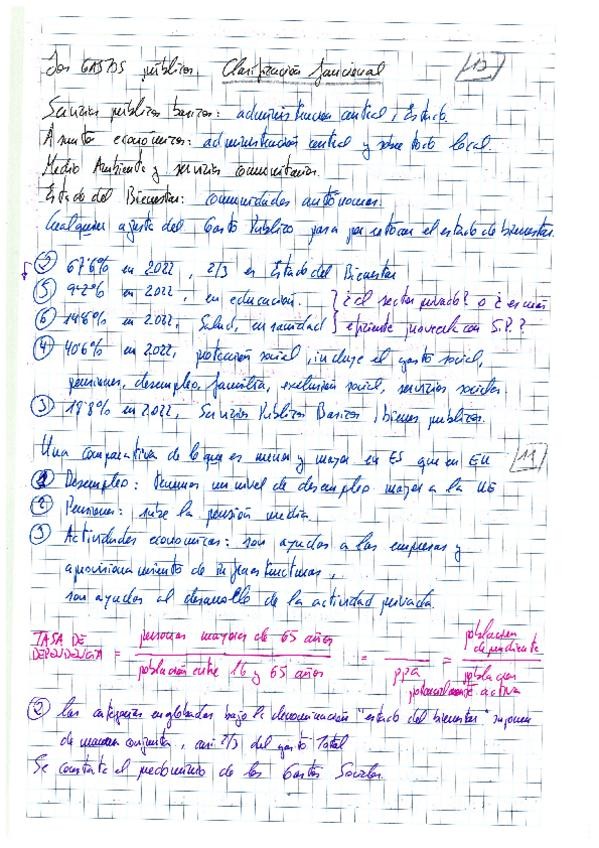 Los GASTOS públicos, Clasificación funcional 13
Servicios públicos básicos: administración central, Estado.
Asuntos económicos: administración central y sobre todo local.
Medio Ambiente y servicios comunitarios.
Estado del Bienestar: comunidades autónomas.
Cualquier ajuste del Gasto Público pasa por retocar el estado de bienestar.
② 67'6% en 2022, 2/3 es Estado del Bienestar
⑤ en 2022, en educación. } ¿el sector privado? o ¿es más
⑥ 14'8% en 2022, Salud, en sanidad } eficiente proveerla con S.P.?
④ 40'6% en 2022, protección social, incluye el gasto social,
pensiones, desempleo, familia, exclusión social, servicios sociales
③ 18'8% en 2022, Servicios Públicos Básicos, bienes públicos.
Una comparativa de lo que es menor y mayor en ES que en EU 11
① Desempleo: Tenemos un nivel de desempleo mayor a la UE
② Pensiones: sube la pensión media.
③ Actividades económicas: son ayudas a las empresas y
aprovisionamiento de infraestructuras,
son ayudas al desarrollo de la actividad privada.
TASA DE DEPENDENCIA = personas mayores de 65 años / población entre 16 y 65 años = / PPA = población dependiente / población potencialmente activa
② Las categorías englobadas bajo la denominación "estado del bienestar" suponen
de manera conjunta, casi 2/3 del gasto Total
Se constata el predominio de los Gastos Sociales